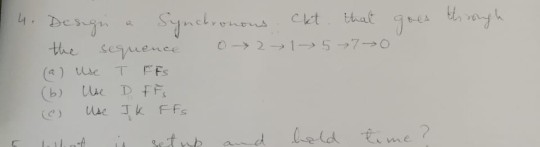 4. Design a Synchronous ckt. that goes through
the sequence 0→2→1→5→7→0
(a) Use T FFs
(b) Use D FFs
(c) Use JK FFs
5 What is setup and hold time?